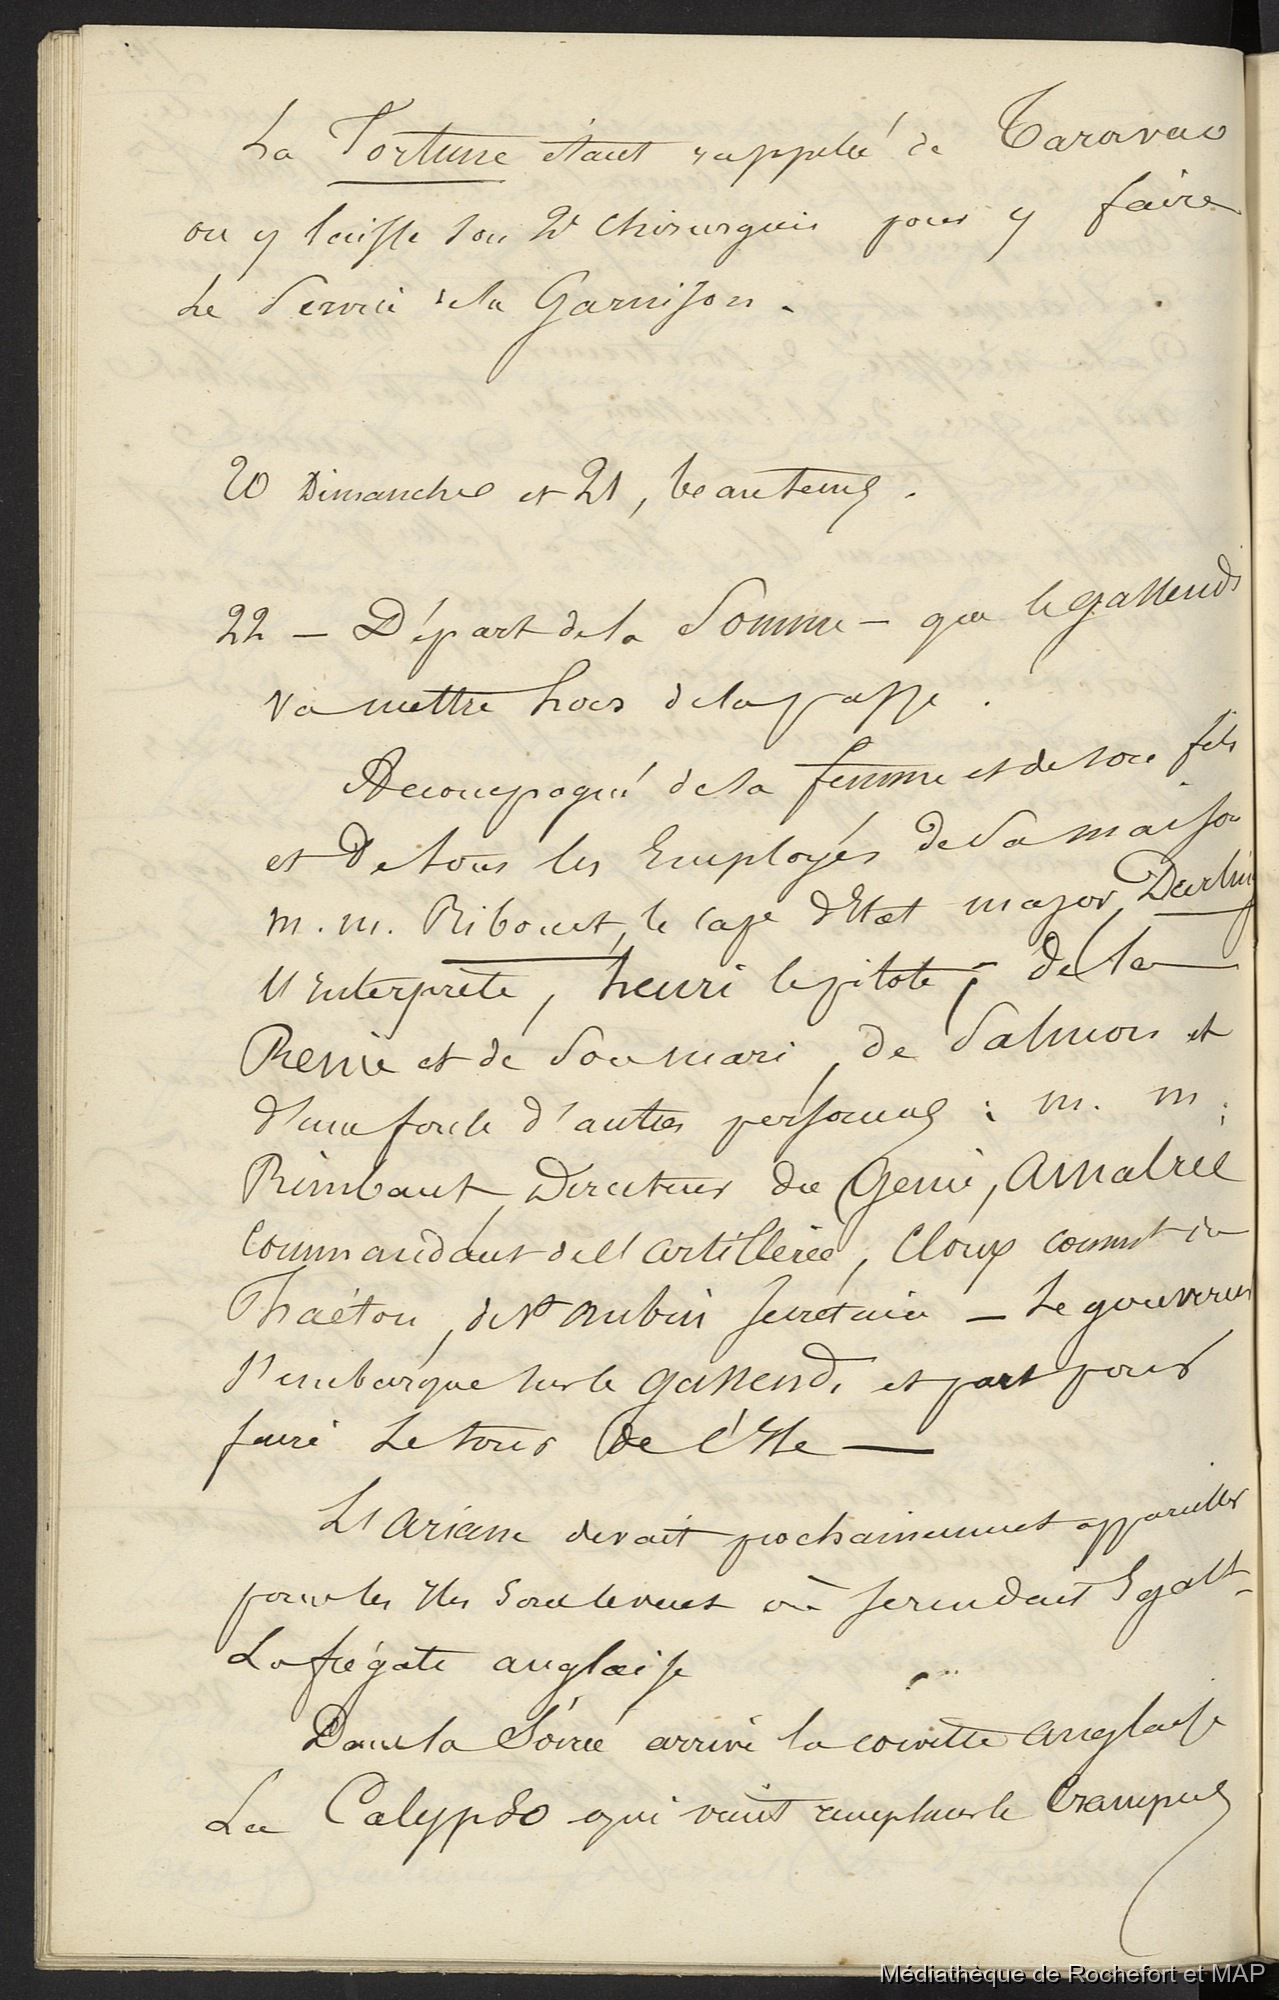 La Fortune étant rappelée de Taravao
on y laisse son 2d chirurgien pour y faire
le service de la Garnison.
20 Dimanche et 21, beau temps.
22 — Départ de la Somme — que le gassendi
va mettre hors de la passe.
Accompagné de sa femme et de son fils
et De tous les Employés de Sa maison
m. m. Ribourt, le cape d'Etat major, Darling
l'interprète, henri le pilote, de la
Reine et de Son mari, de Salmon et
d'une foule d'autres personnes : m. m.
Rimbaut, Directeur du Genie, Amalric
Commandant de l'artillerie, Cloux commt du
Phaéton, de St Aubin secretaire — Le gouverneur
s'embarque sur le gassendi et part pour
faire le tour de l'Ile —
L'ariane devait prochainement appareiller
pour les Iles Sous le vent où se rendait Egalt
La frégate anglaise
Dans la Soirée arrive la corvette anglaise
La Calypso qui vient remplacer le Grampus
Médiathèque de Rochefort et MAP